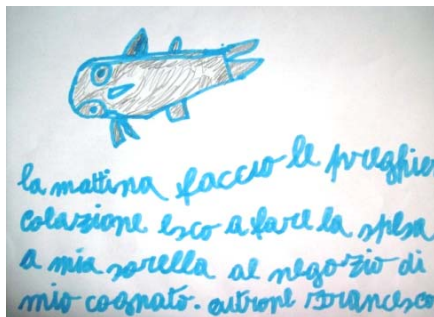 la mattina faccio le preghie
colazione esco a fare la spesa
a mia sorella al negozio di
mio cognato. cutrone Francesco